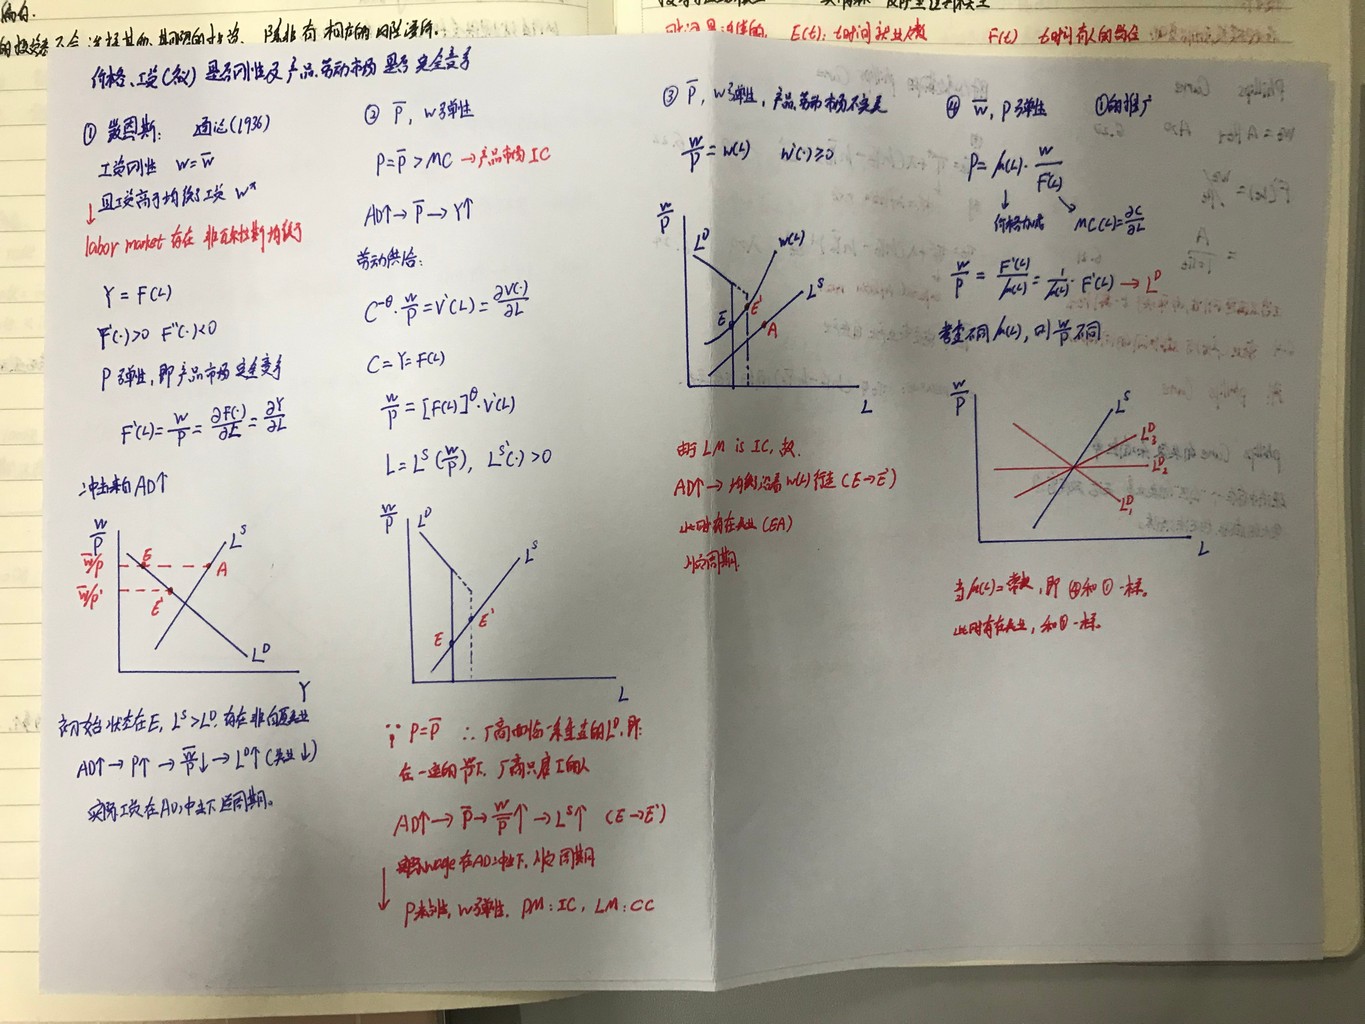 价格、工资(名义)是否刚性及产品、劳动市场是否完全竞争
① 凯恩斯: 通论(1936)
工资刚性 w=w̅
且工资高于均衡工资 w*
↓ labor market 存在非瓦尔拉斯均衡
Y=F(L)
F'(·)>0 F''(·)<0
P弹性,即产品市场完全竞争
F'(L)=w/P=∂F(·)/∂L=∂Y/∂L
冲击来自AD↑
w/P
w̅/P
w̅/P'
E
E'
A
L^S
L^D
Y
初始状态在E, L^S>L^D, 存在非自愿失业
AD↑→P↑→w̅/P↓→L^D↑(失业↓)
实际工资在AD冲击下逆周期。
② P̅, w弹性
P=P̅>MC→产品市场IC
AD↑→P̅→Y↑
劳动供给:
C^-θ·w/P=V'(L)=∂V(·)/∂L
C=Y=F(L)
w/P=[F(L)]^θ·V'(L)
L=L^S(w/P), L^S'(·)>0
w/P
L^D
L^S
E
E'
L
∵ P=P̅ ∴厂商面临一条垂直的L^D,即:
在一定的w/P下,厂商只雇
AD↑→P̅→w/P↑→L^S↑ (E→E')
实际wage在AD冲击下,顺周期
↓ P粘性, w弹性, PM:IC, LM:CC
③ P̅, w弹性, 产品劳动市场不完美
w/P=w(L) w'(·)≥0
w/P
L^D
w(L)
L^S
E
E'
A
L
由于LM is IC,故.
AD↑→均衡沿着w(L)行走(E→E')
此时存在失业(EA)
顺周期.
④ w̅, P弹性 ①的推广
P=μ(L)·w/F'(L)
价格加成
MC(L)=∂C/∂L
w/P=F'(L)/μ(L)=1/μ(L)·F'(L)→L^D
考虑不同μ(L),则w/P不同
w/P
L^S
L^D_3
L^D_2
L^D_1
L
当μ(L)=常数,即④和①一样。
此时存在失业,和①一样.
E(t): t时间就业人数
F(t)